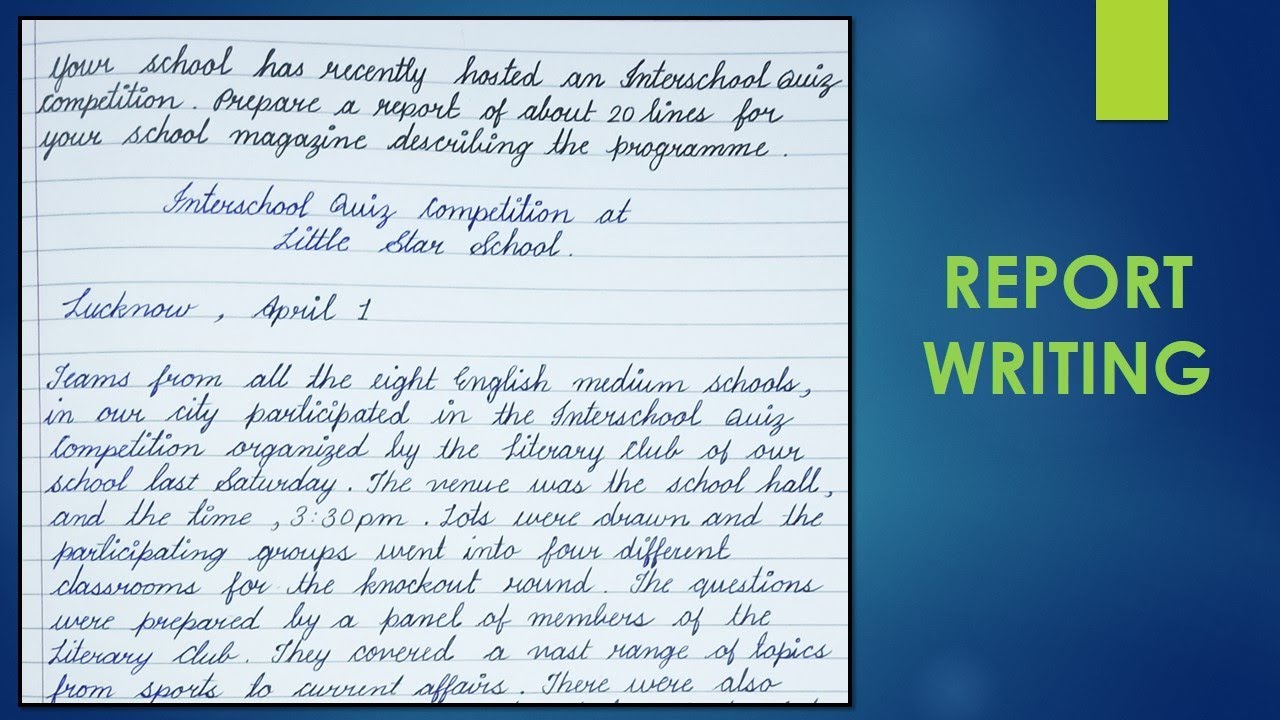 Your school has recently hosted an Interschool Quiz
Competition. Prepare a report of about 20 lines for
your school magazine describing the programme.
Interschool Quiz Competition at
Little Star School.
Lucknow, April 1
Teams from all the eight English medium schools,
in our city participated in the Interschool Quiz
Competition organized by the Literary Club of our
school last Saturday. The venue was the school hall,
and the time, 3:30pm. Lots were drawn and the
participating groups went into four different
classrooms for the knockout round. The questions
were prepared by a panel of members of the
Literary Club. They covered a vast range of topics
from sports to current affairs. There were also
REPORT
WRITING